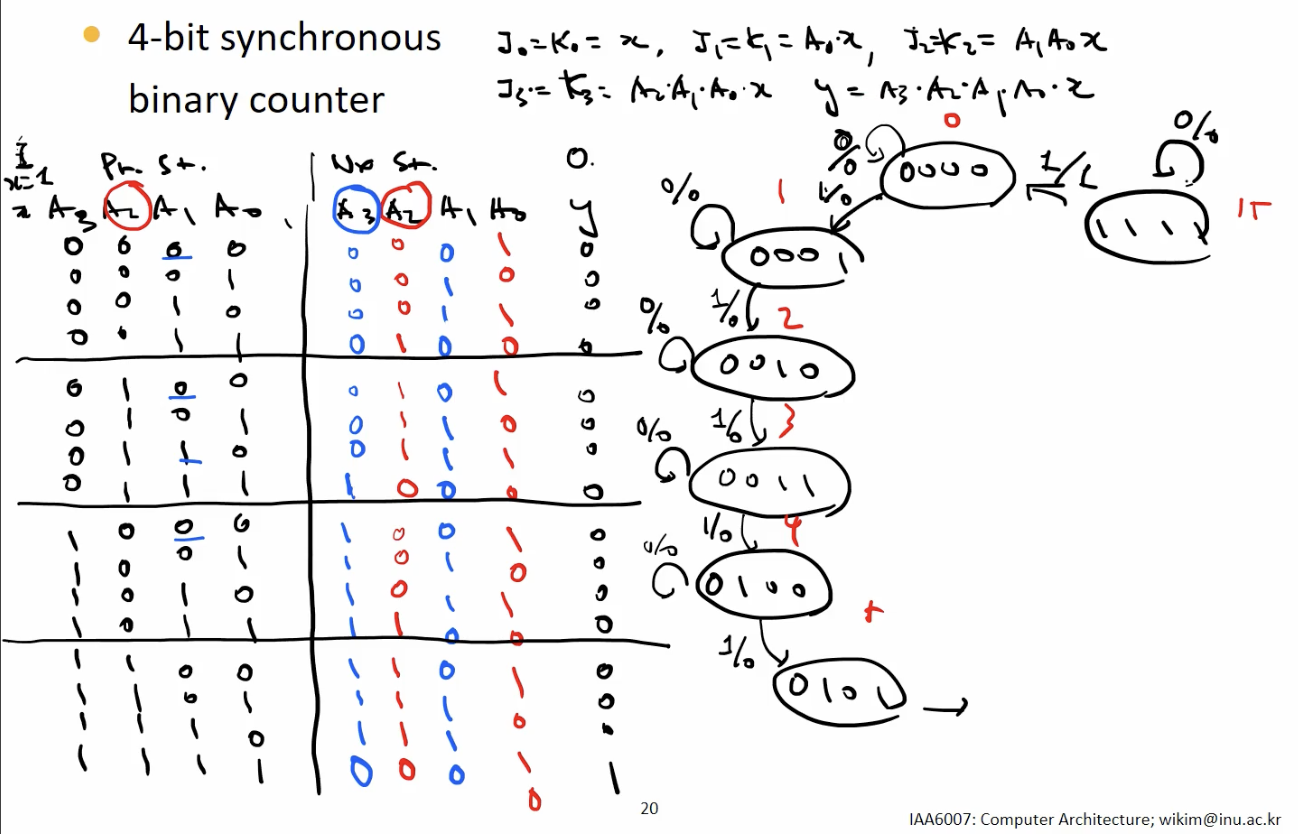 4-bit synchronous
binary counter
J₀=K₀= x, J₁=K₁= A₀·x, J₂=K₂= A₁A₀x
J₃=K₃= A₂·A₁·A₀·x y = A₃·A₂·A₁·A₀·x
I Pr. St. Nx St. O.
x=1
x A₃ A₂ A₁ A₀ A₃ A₂ A₁ A₀ y
0 0 0 0 0 0 0 1 0
0 0 0 1 0 0 1 0 0
0 0 1 0 0 0 1 1 0
0 0 1 1 0 1 0 0 0
0 1 0 0 0 1 0 1 0
0 1 0 1 0 1 1 0 0
0 1 1 0 0 1 1 1 0
0 1 1 1 1 0 0 0 0
1 0 0 0 1 0 0 1 0
1 0 0 1 1 0 1 0 0
1 0 1 0 1 0 1 1 0
1 0 1 1 1 1 0 0 0
1 1 0 0 1 1 0 1 0
1 1 0 1 1 1 1 0 0
1 1 1 0 1 1 1 1 0
1 1 1 1 0 0 0 0 1
0
0/0 0000 1/1 0/0
1/0 1111 15
0/0 1
0001
1/0 2
0/0 0010
1/0 3
0/0 0011
1/0 4
0/0 0100
5
1/0
0101
20
IAA6007: Computer Architecture; wikim@inu.ac.kr